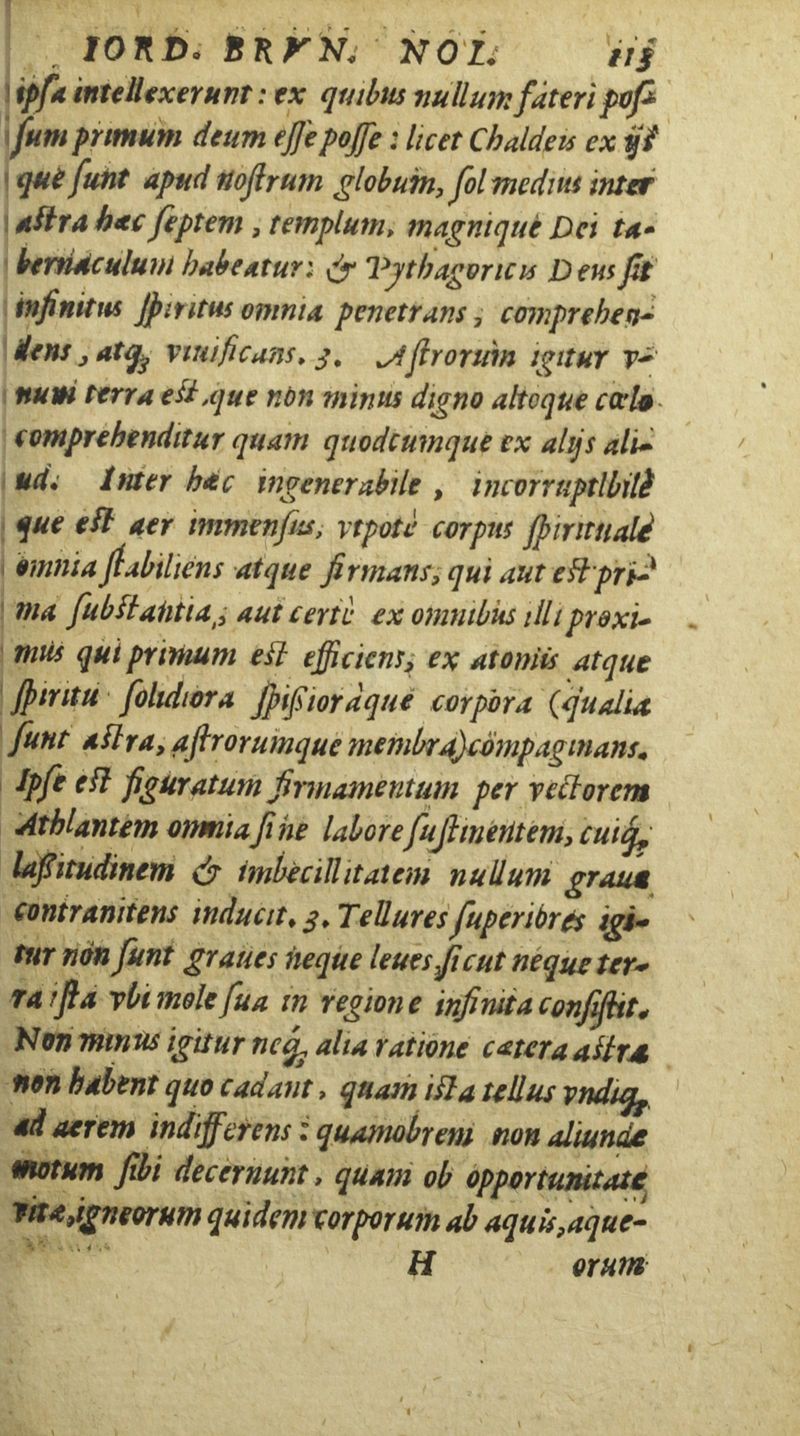 IORD. BRVN. NOL. 113
ipſa intellexerunt: ex quibus nullum fateri poſ-
ſum primum deum eſſe poſſe: licet Chaldeis ex ijs
que ſunt apud noſtrum globum, ſol medius inter
aſtra hæc ſeptem, templum, magnique Dei ta-
bernaculum habeatur: & Pythagoricis Deus ſit
infinitus ſpiritus omnia penetrans, comprehen-
dens, atq; viuificans. 3. Aſtrorum igitur v-
num terra eſt, que non minus digno altoque cœlo
comprehenditur quam quodcumque ex alijs ali-
ud. Inter hæc ingenerabile, incorruptlbile
que eſt aer immenſus, vtpote corpus ſpirituale
omnia ſtabiliens atque firmans, qui aut eſt pri-
ma ſubſtantia, aut certè ex omnibus illi proxi-
mus qui primum eſt efficiens, ex atomis atque
ſpiritu ſolidiora ſpißioraque corpora (qualia
ſunt aſtra, aſtrorumque membra) compaginans.
Ipſe eſt figuratum firmamentum per vectorem
Athlantem omnia ſine labore ſuſtinentem, cuiq;
laßitudinem & imbecillitatem nullum graue
contranitens inducit. 3. Tellures ſuperiores igi-
tur non ſunt graues neque leues ſicut neque ter-
ra iſta vbi mole ſua in regione infinita conſiſtit.
Non minus igitur neq; alia ratione cætera aſtra
non habent quo cadant, quam iſta tellus vndiq;
ad aerem indifferens: quamobrem non aliunde
motum ſibi decernunt, quam ob opportunitatē
vitæ, igneorum quidem corporum ab aquis, aque-
H orum